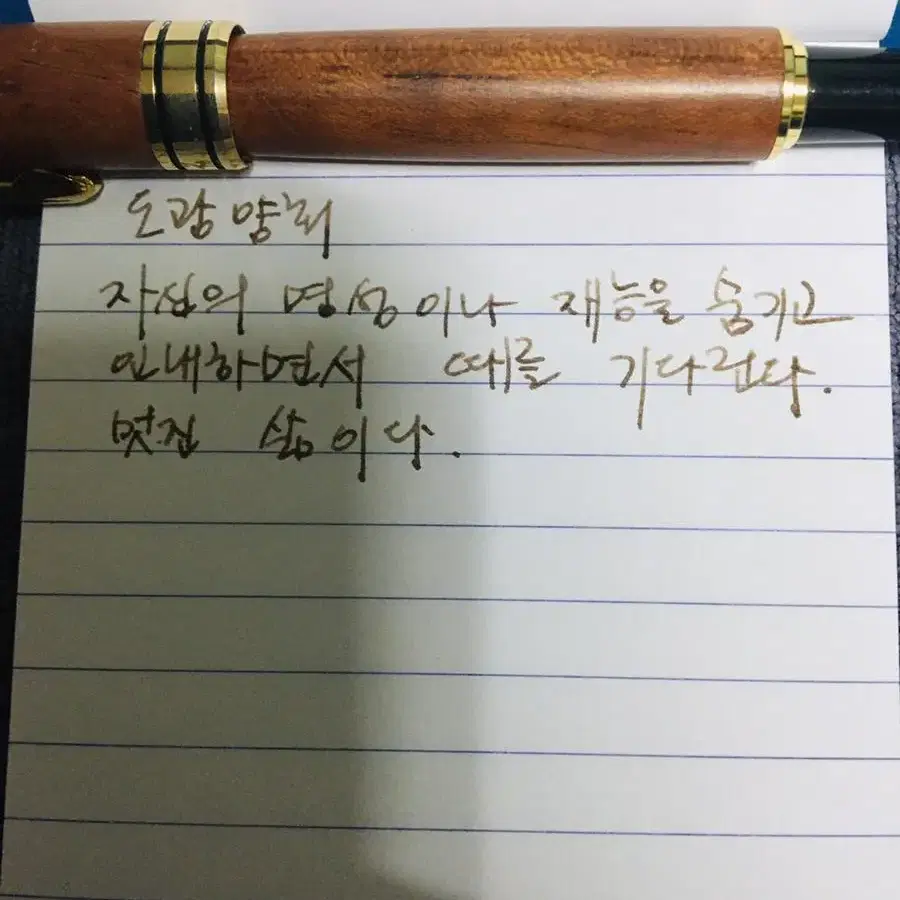 도광양회
자신의 명성이나 재능을 숨기고
인내하면서 때를 기다린다.
멋진 삶이다.